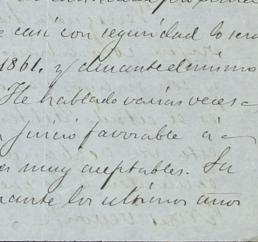 casi con seguridad lo será
1861, y durante el mismo
He hablado varias veces a
juicio favorable á
muy aceptables. Su
los últimos años